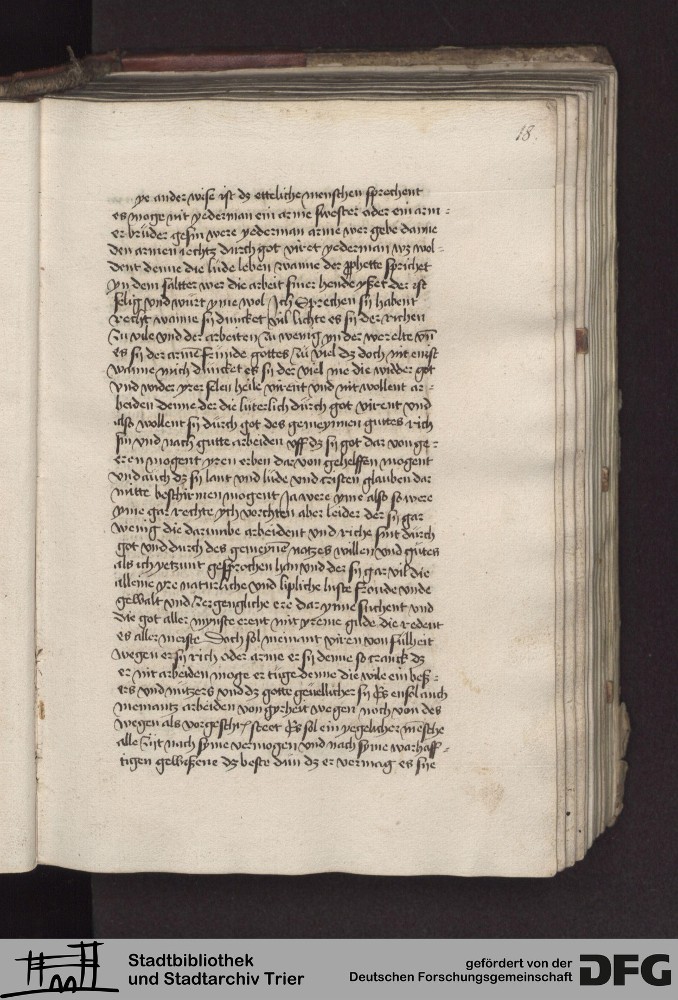 18.
ye ander wise ist dz etteliche menschen sprechent
es moge nit yederman ein arme swester oder ein arm-
er brüder gesin were yederman arme wer gebe danne
den armen ichtz durch got viret yederman wz wol-
dent denne die lüde leben wanne der pphette sprichet
yn dem saltter wer die arbeit siner hende yszet der ist
selig vnd würt yme wol Ich Sprechen sü habent
recht wanne sü duncket vil lichte es sü der richen
zu vile vnd der arbeiten zu wenig yn der werelte vn̄
es sü der arme fründe gottes zu viel dz doch nit enist
wanne mich duncket es sü der viel me die widder got
vnd wider yrer selen heile virent vnd nit wollent ar-
beiden denne der die luterlich durch got virent vnd
also wollent sü durch got des gemeynnen guttes rich
sin vnd nach gutte arbeiden vff dz sü got dar von ge-
eren mogent yren erben dar von gehelffen mogent
vnd auch dz sü lant vnd lüde vnd cristen glauben dar
mitte beschirmen mogent Ja were yme also so were
yme gar rechte ych vorchten aber leider der sü gar
wenig die darumbe arbeident vnd riche sint durch
got vnd durch des gemeynē notzes willen vnd gütes
als ich yetzunt gesprochen han vnd der sü gar vil die
alleine yre naturliche vnd lipliche luste froude vnde
gewalt vnd zergengliche ere dar ynne suchent vnd
die got aller mynste erent mit yreme gude die redent
es aller meiste Doch sol niemant viren von fulheit
wegen er sü rich oder arme er sü denne so kranck dz
er nit arbeiden moge er tüge denne die wile ein besz-
ers vnd nützers vnd dz gotte geuellicher sü Es ensol auch
niemantz arbeiden von gyrheit wegen noch von des
wegen als vorgeschr. steet Es sol ein yegelicher mēsche
alle zijt nach syme vermogen vnd nach syme warhaff-
tigen gewiszene dz beste dün dz er vermag es sye
Stadtbibliothek
und Stadtarchiv Trier
gefördert von der
Deutschen Forschungsgemeinschaft
DFG